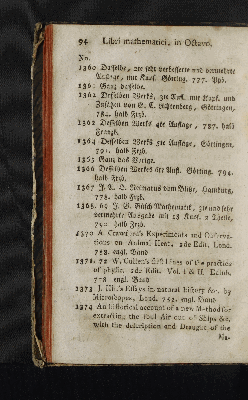 94 Libri mathematici, in Octavo.
No.
1360 Dasselbe, 2te sehr verbesserte und vermehrte
Auflage, mit Kupf. Götting. 777. Ppb.
1361 Ganz dasselbe.
1362 Desselben Werks, 3te Aufl. mit Kupf. und
Zusätzen von G. C. Lichtenberg, Göttingen,
784. halb Frzb.
1363 Desselben Werks 4te Auflage, 787. halb
Franzb.
1364 Desselben Werks 5te Auflage, Göttingen,
791. halb Frzb.
1365 Ganz das Vorige.
1366 Desselben Werkes 6te Aufl. Götting. 794.
halb Frzb.
1367 J. A. H. Reimarus vom Blitze, Hamburg,
778. halb Frzb.
1368. 69 J. G. Büsch Mathematik, zweite sehr
vermehrte Ausgabe mit 18 Kupf. 2 Theile,
790. halb Frzb.
1370 A. Crawford's Experiments and Observa-
tions on Animal Heat, 2de Edit. Lond.
788. engl. Band
1371. 72 W. Cullen's first lines of the practice
of physic. 2de Edit. Vol. I & II. Edinb.
778. engl. Band
1373 J. Hill's Essays in natural history &c. by
Microscopes. Lond. 752. engl. Band
1374 An historical account of a new Method for
extracting the foul Air out of Ships &c.
with the description and Draught of the
Ma-